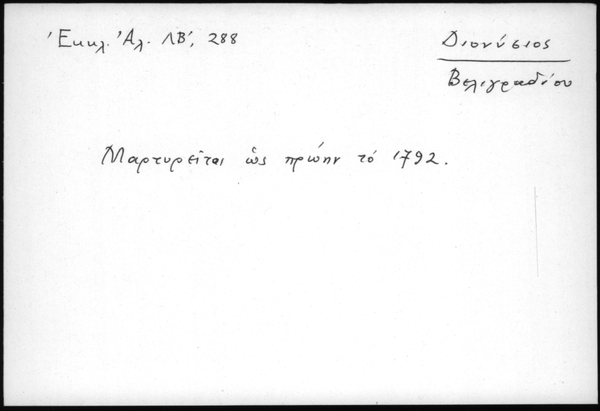 Ἐκκλ. Ἀλ. ΛΒ', 288
Διονύσιος
Βελιγραδίου
Μαρτυρεῖται ὡς πρώην τό 1792.